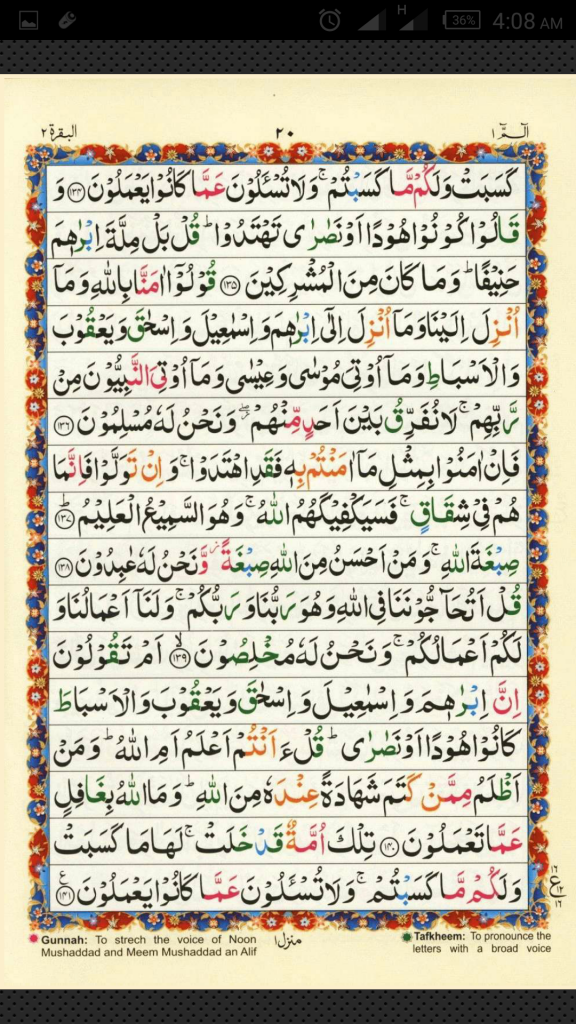 H 36% 4:08 AM
البقرة ٢ ٢٠ الٓمّٓ ١
كَسَبَتْ وَلَكُمْ مَّا كَسَبْتُمْ ۚ وَلَا تُسْـَٔلُوْنَ عَمَّا كَانُوْا يَعْمَلُوْنَ ﴿۱۳۴﴾ وَ
قَالُوْا كُوْنُوْا هُوْدًا اَوْ نَصٰرٰى تَهْتَدُوْا ؕ قُلْ بَلْ مِلَّةَ اِبْرٰهٖمَ
حَنِيْفًا ؕ وَمَا كَانَ مِنَ الْمُشْرِكِيْنَ ﴿۱۳۵﴾ قُوْلُوْٓا اٰمَنَّا بِاللّٰهِ وَمَآ
اُنْزِلَ اِلَيْنَا وَمَآ اُنْزِلَ اِلٰٓى اِبْرٰهٖمَ وَاِسْمٰعِيْلَ وَاِسْحٰقَ وَيَعْقُوْبَ
وَالْاَسْبَاطِ وَمَآ اُوْتِيَ مُوْسٰى وَعِيْسٰى وَمَآ اُوْتِيَ النَّبِيُّوْنَ مِنْ
رَّبِّهِمْ ۚ لَا نُفَرِّقُ بَيْنَ اَحَدٍ مِّنْهُمْ ۖ وَنَحْنُ لَهٗ مُسْلِمُوْنَ ﴿۱۳۶﴾
فَاِنْ اٰمَنُوْا بِمِثْلِ مَآ اٰمَنْتُمْ بِهٖ فَقَدِ اهْتَدَوْا ۚ وَاِنْ تَوَلَّوْا فَاِنَّمَا
هُمْ فِيْ شِقَاقٍ ۚ فَسَيَكْفِيْكَهُمُ اللّٰهُ ۚ وَهُوَ السَّمِيْعُ الْعَلِيْمُ ﴿۱۳۷﴾ؕ
صِبْغَةَ اللّٰهِ ۚ وَمَنْ اَحْسَنُ مِنَ اللّٰهِ صِبْغَةً ؗ وَّنَحْنُ لَهٗ عٰبِدُوْنَ ﴿۱۳۸﴾
قُلْ اَتُحَآجُّوْنَنَا فِي اللّٰهِ وَهُوَ رَبُّنَا وَرَبُّكُمْ ۚ وَلَنَآ اَعْمَالُنَا وَ
لَكُمْ اَعْمَالُكُمْ ۚ وَنَحْنُ لَهٗ مُخْلِصُوْنَ ﴿۱۳۹﴾ۙ اَمْ تَقُوْلُوْنَ
اِنَّ اِبْرٰهٖمَ وَاِسْمٰعِيْلَ وَاِسْحٰقَ وَيَعْقُوْبَ وَالْاَسْبَاطَ
كَانُوْا هُوْدًا اَوْ نَصٰرٰى ؕ قُلْ ءَاَنْتُمْ اَعْلَمُ اَمِ اللّٰهُ ؕ وَمَنْ
اَظْلَمُ مِمَّنْ كَتَمَ شَهَادَةً عِنْدَهٗ مِنَ اللّٰهِ ؕ وَمَا اللّٰهُ بِغَافِلٍ
عَمَّا تَعْمَلُوْنَ ﴿۱۴۰﴾ تِلْكَ اُمَّةٌ قَدْ خَلَتْ ۚ لَهَا مَا كَسَبَتْ
وَلَكُمْ مَّا كَسَبْتُمْ ۚ وَلَا تُسْـَٔلُوْنَ عَمَّا كَانُوْا يَعْمَلُوْنَ ﴿۱۴۱﴾ع
منزل ١
Gunnah: To strech the voice of Noon
Mushaddad and Meem Mushaddad an Alif
Tafkheem: To pronounce the
letters with a broad voice